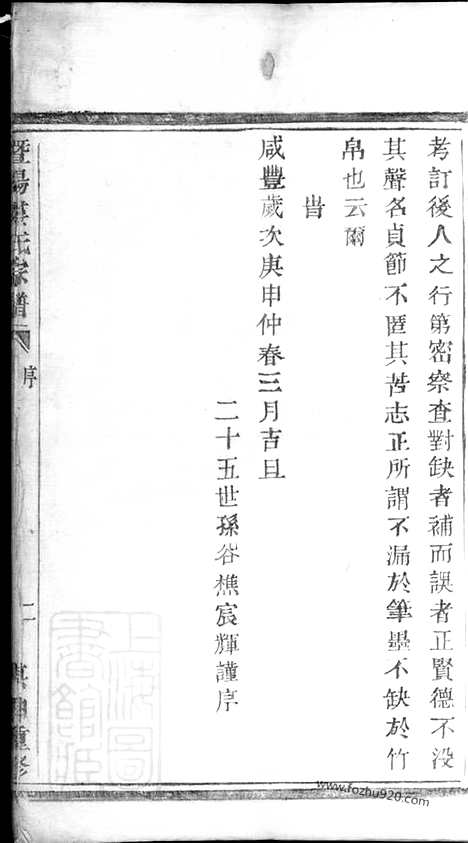 考訂後人之行第密察查對缺者補而誤者正賢德不没
其聲名貞節不匿其苦志正所謂不漏於筆墨不缺於竹
帛也云爾
旹
咸豐歲次庚申仲春三月吉旦
二十五世孫谷樵宸輝謹序
暨陽 氏宗譜
序
二
重修
上海圖書館藏
www.fozhu920.com